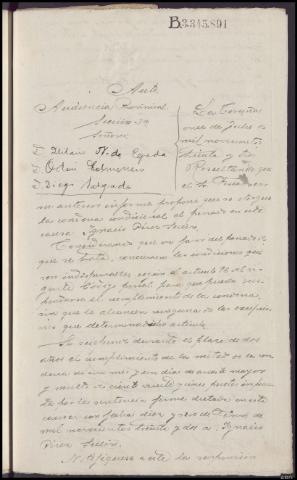 B.3.345.891
Auto
Audiencia Provincial
Sección 3ª
Señores
D. Hilario N. de Cepeda
D. Odón Colmenero
D. Diego
La Coruña
once de Julio de
mil novecientos
treinta y dos
Resultando que
el Sr.
en anterior informe propone que se otorgue
la condena condicional al penado en esta
causa Ignacio Pérez
Considerando que en favor del penado de
que se trata, concurren las condiciones que
son indispensables según el artículo del vi
gente Código penal para que pueda sus
penderse el cumplimiento de la condena,
sin que le alcancen ninguna de las excepcio
nes que determina dicho artículo
Se suspende durante el plazo de dos
años el cumplimiento de la mitad de la con
dena de un mes y un día de arresto mayor
y multa de ciento veinte y cinco pesetas impues
ta por la sentencia firme dictada en esta
causa con fecha diez y de de
mil novecientos treinta y dos a Ignacio
Pérez
Notifíquese a este la suspensión